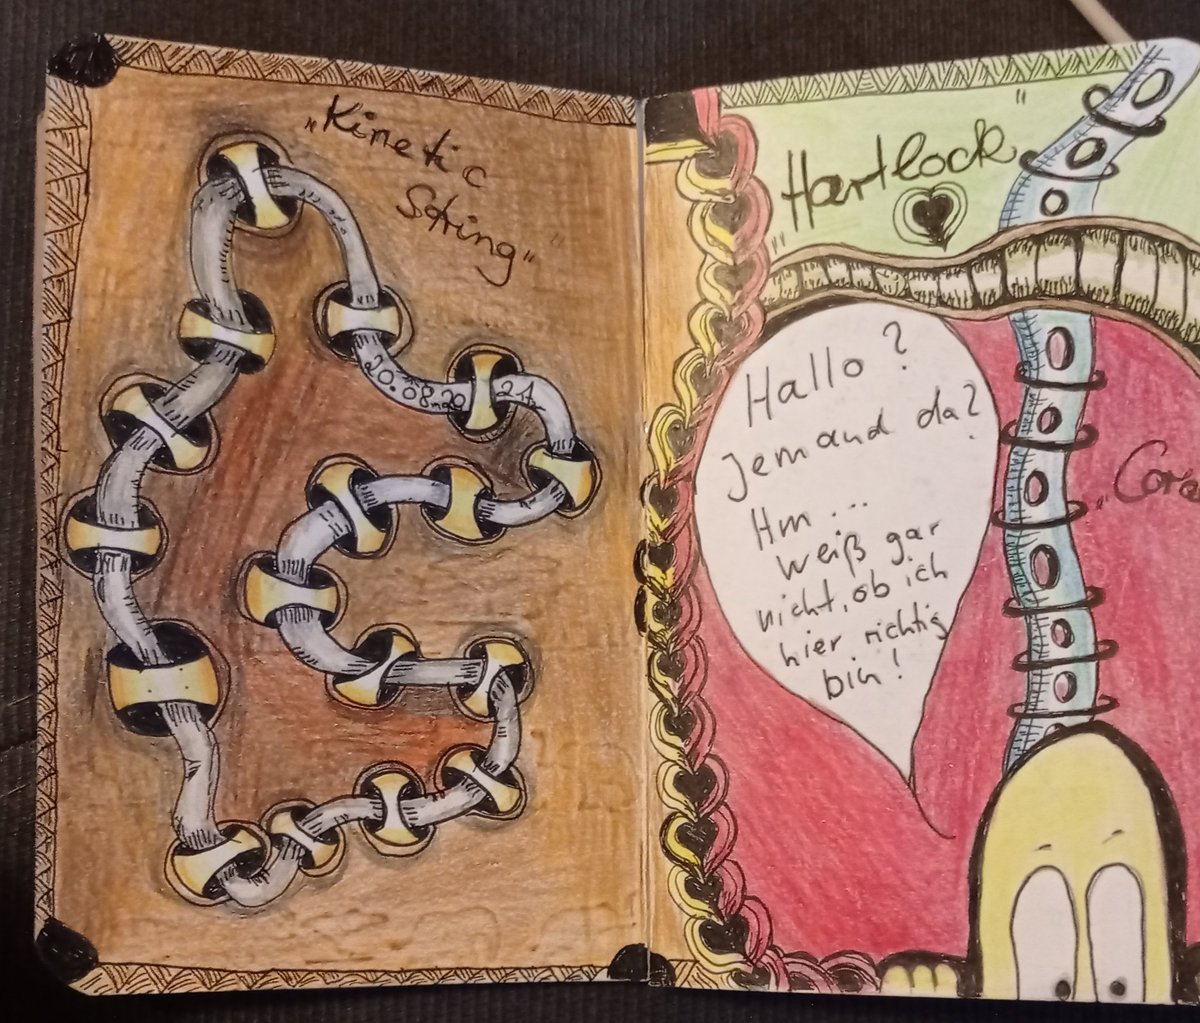 „Kinetic
String"
20.08.2021
"Hartlock"
Hallo?
Jemand da?
Hm...
weiß gar
nicht, ob ich
hier richtig
bin!
„Cora